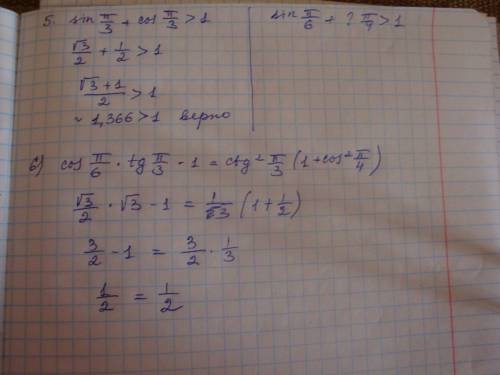 5. sin π/3 + cos π/3 > 1
√3/2 + 1/2 > 1
(√3+1)/2 > 1
~ 1,366 > 1 верно
sin π/6 + ? π/9 > 1
6) cos π/6 · tg π/3 · 1 = ctg² π/3 (1 + cos² π/4)
√3/2 · √3 − 1 = 1/√3 (1 + 1/2)
3/2 − 1 = 3/2 · 1/3
1/2 = 1/2